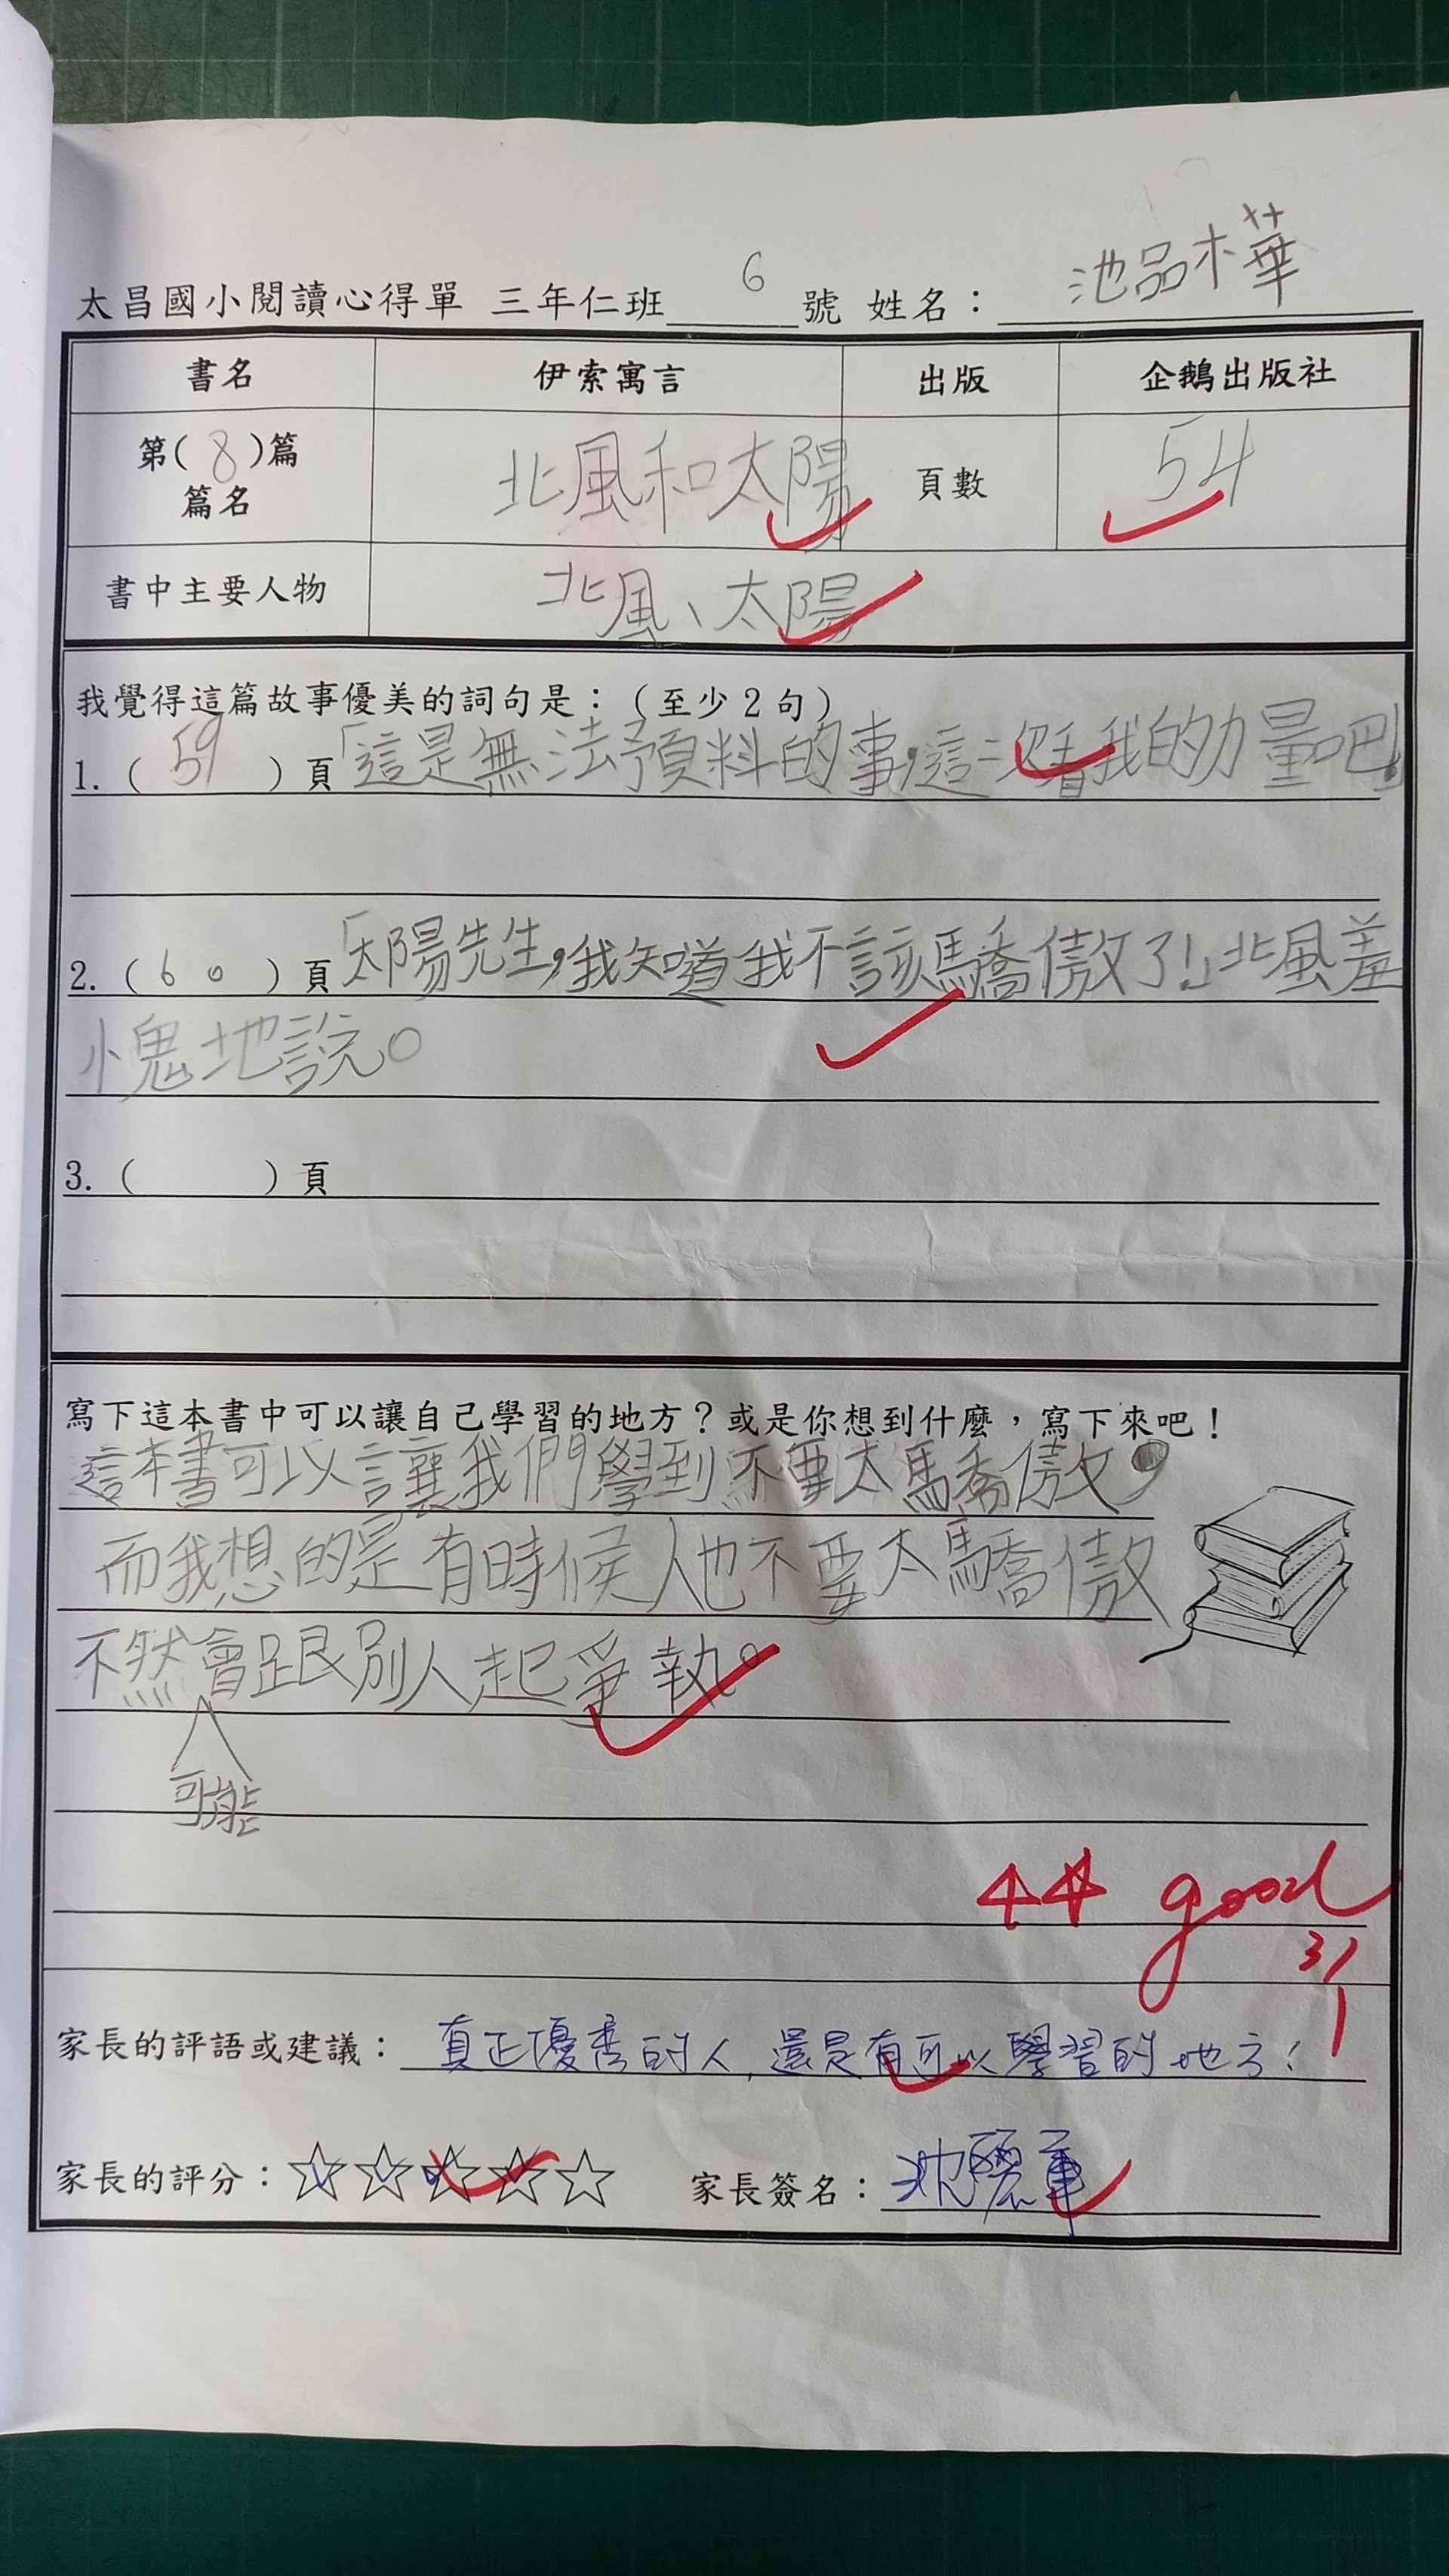 太昌國小閱讀心得單 三年仁班 6 號 姓名：池品樺
書名 伊索寓言 出版 企鵝出版社
第(8)篇 篇名 北風和太陽 頁數 54
書中主要人物 北風、太陽
我覺得這篇故事優美的詞句是：（至少2句）
1.（59）頁「這是無法預料的事，這次看我的力量吧!」
2.（60）頁「太陽先生，我知道我不該驕傲了!」北風羞
愧地說。
3.（ ）頁
寫下這本書中可以讓自己學習的地方？或是你想到什麼，寫下來吧！
這本書可以讓我們學到不要太驕傲，
而我想的是有時候人也不要太驕傲
不然會跟別人起爭執。
可能
good
3/1
家長的評語或建議：真正優秀的人，還是有可以學習的地方！
家長的評分：☆☆☆☆☆ 家長簽名：沈麗華